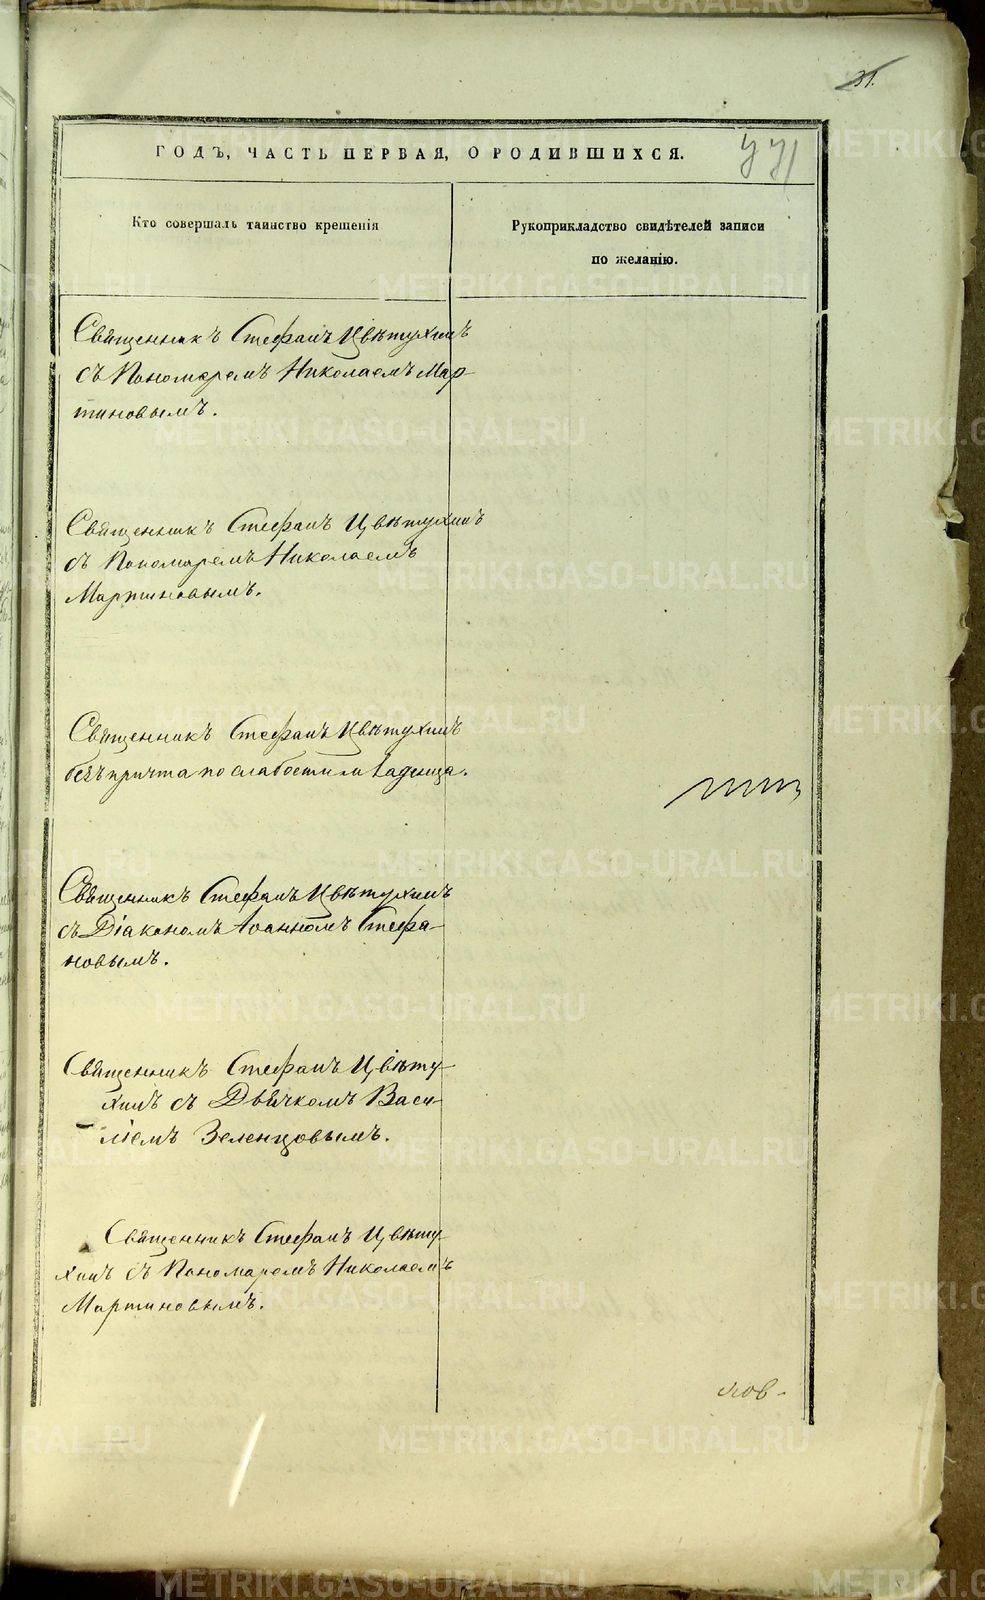 31.
ГОДЪ, ЧАСТЬ ПЕРВАЯ, О РОДИВШИХСЯ.
Кто совершалъ таинство крещенія
Рукоприкладство свидѣтелей записи
по желанію.
Священникъ Стефанъ Цвѣтухинъ
съ Пономаремъ Николаемъ Мар-
тиновымъ.
Священникъ Стефанъ Цвѣтухинъ
съ Пономаремъ Николаемъ
Мартиновымъ.
Священникъ Стефанъ Цвѣтухинъ
безъ причта по слабости младенца.
Священникъ Стефанъ Цвѣтухинъ
съ Діакономъ Іоанномъ Стефа-
новымъ.
Священникъ Стефанъ Цвѣту-
хинъ съ Дьячкомъ Васи-
ліемъ Зеленцовымъ.
Священникъ Стефанъ Цвѣту-
хинъ съ Пономаремъ Николаемъ
Мартиновымъ.
METRIKI.GASO-URAL.RU